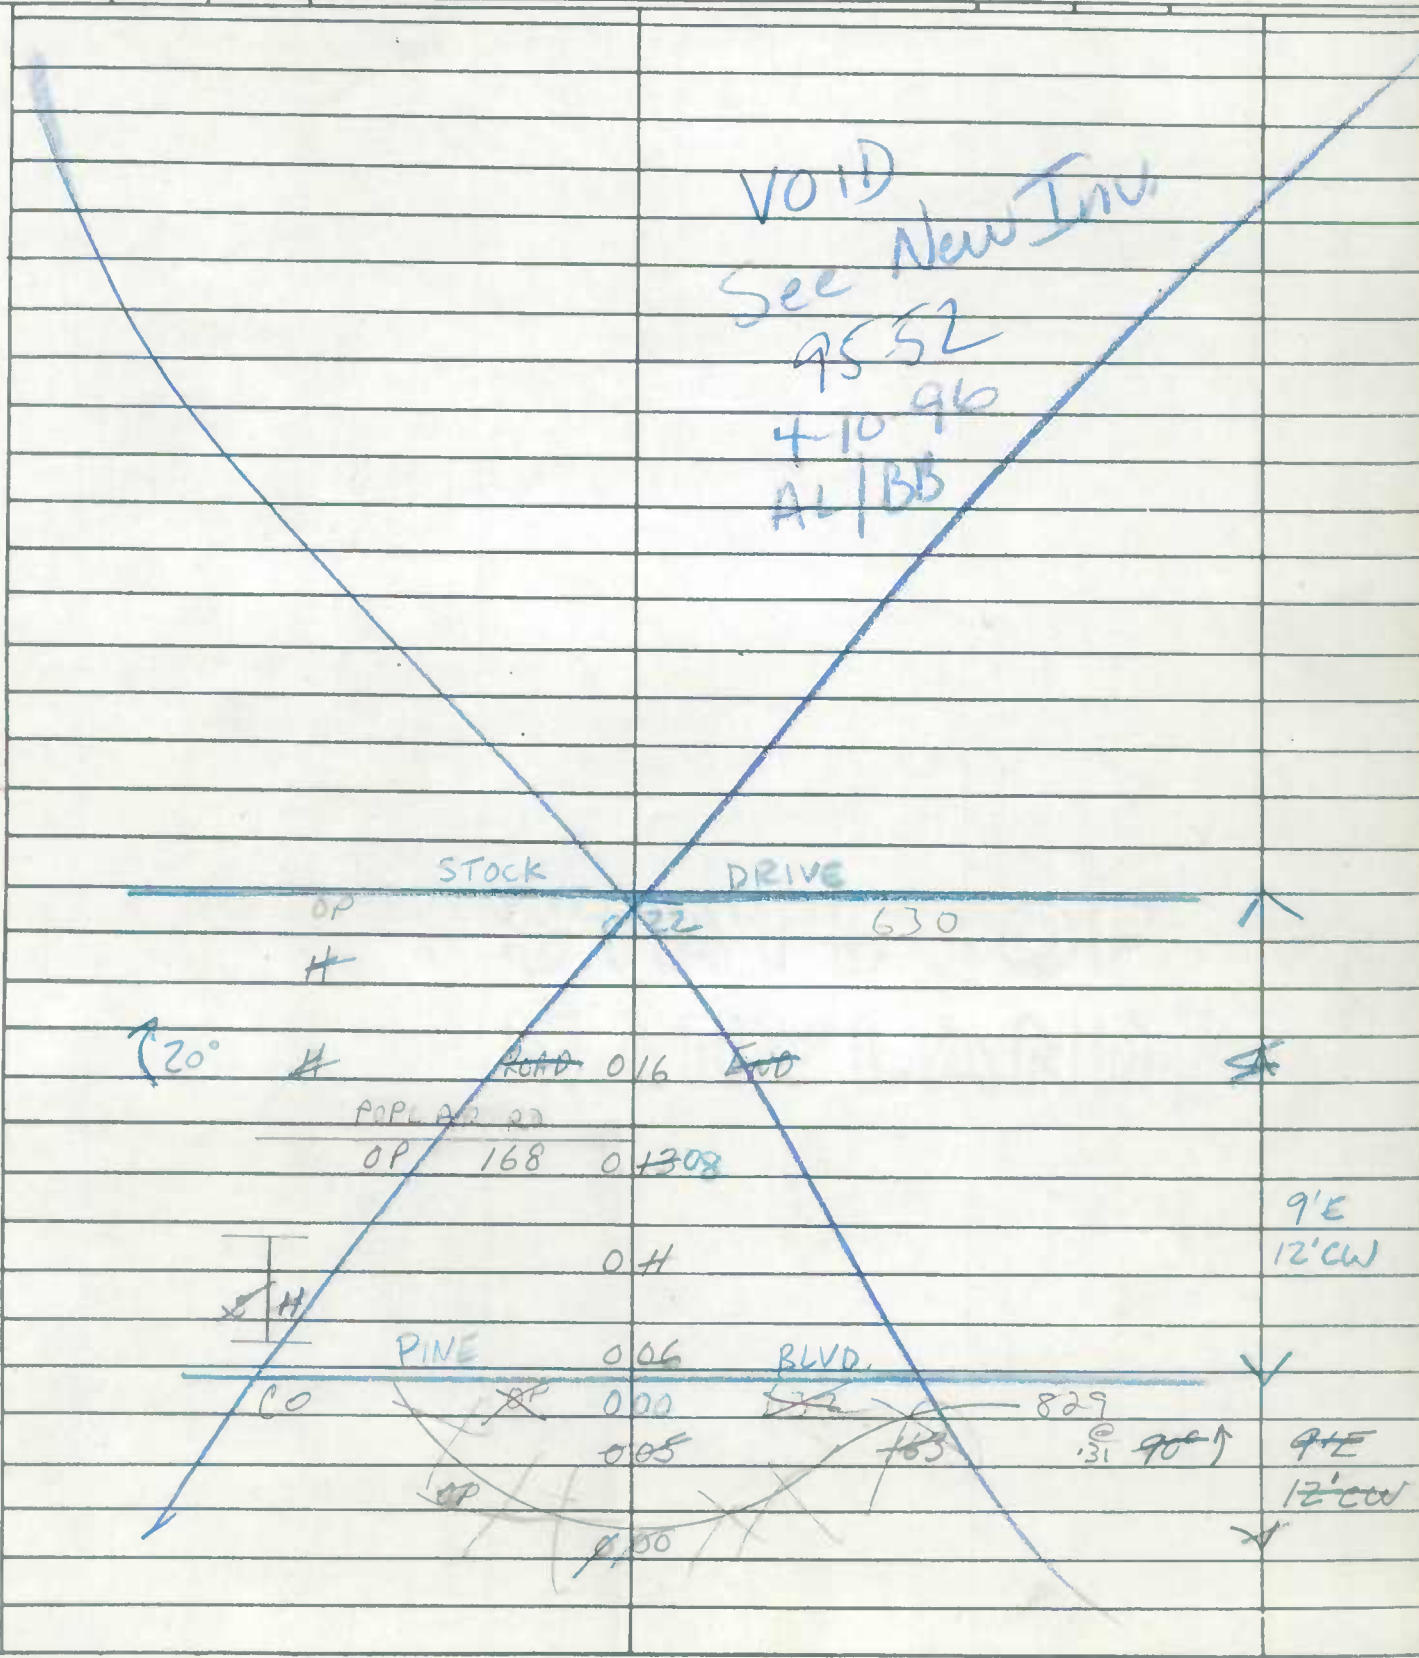 VOID
See New Inv.
9552
4-10-96
AL/BB
STOCK DRIVE
OP 0 22 630
H
20° H ROAD 0 16 END
POPLAR RD
OP 168 0 13 08
9'E
0 H 12'CW
H
PINE 0 06 BLVD.
CO OP 0 00 632 829
0 05 163 @ .31 90° 9'E
OP 12'CW
0 00